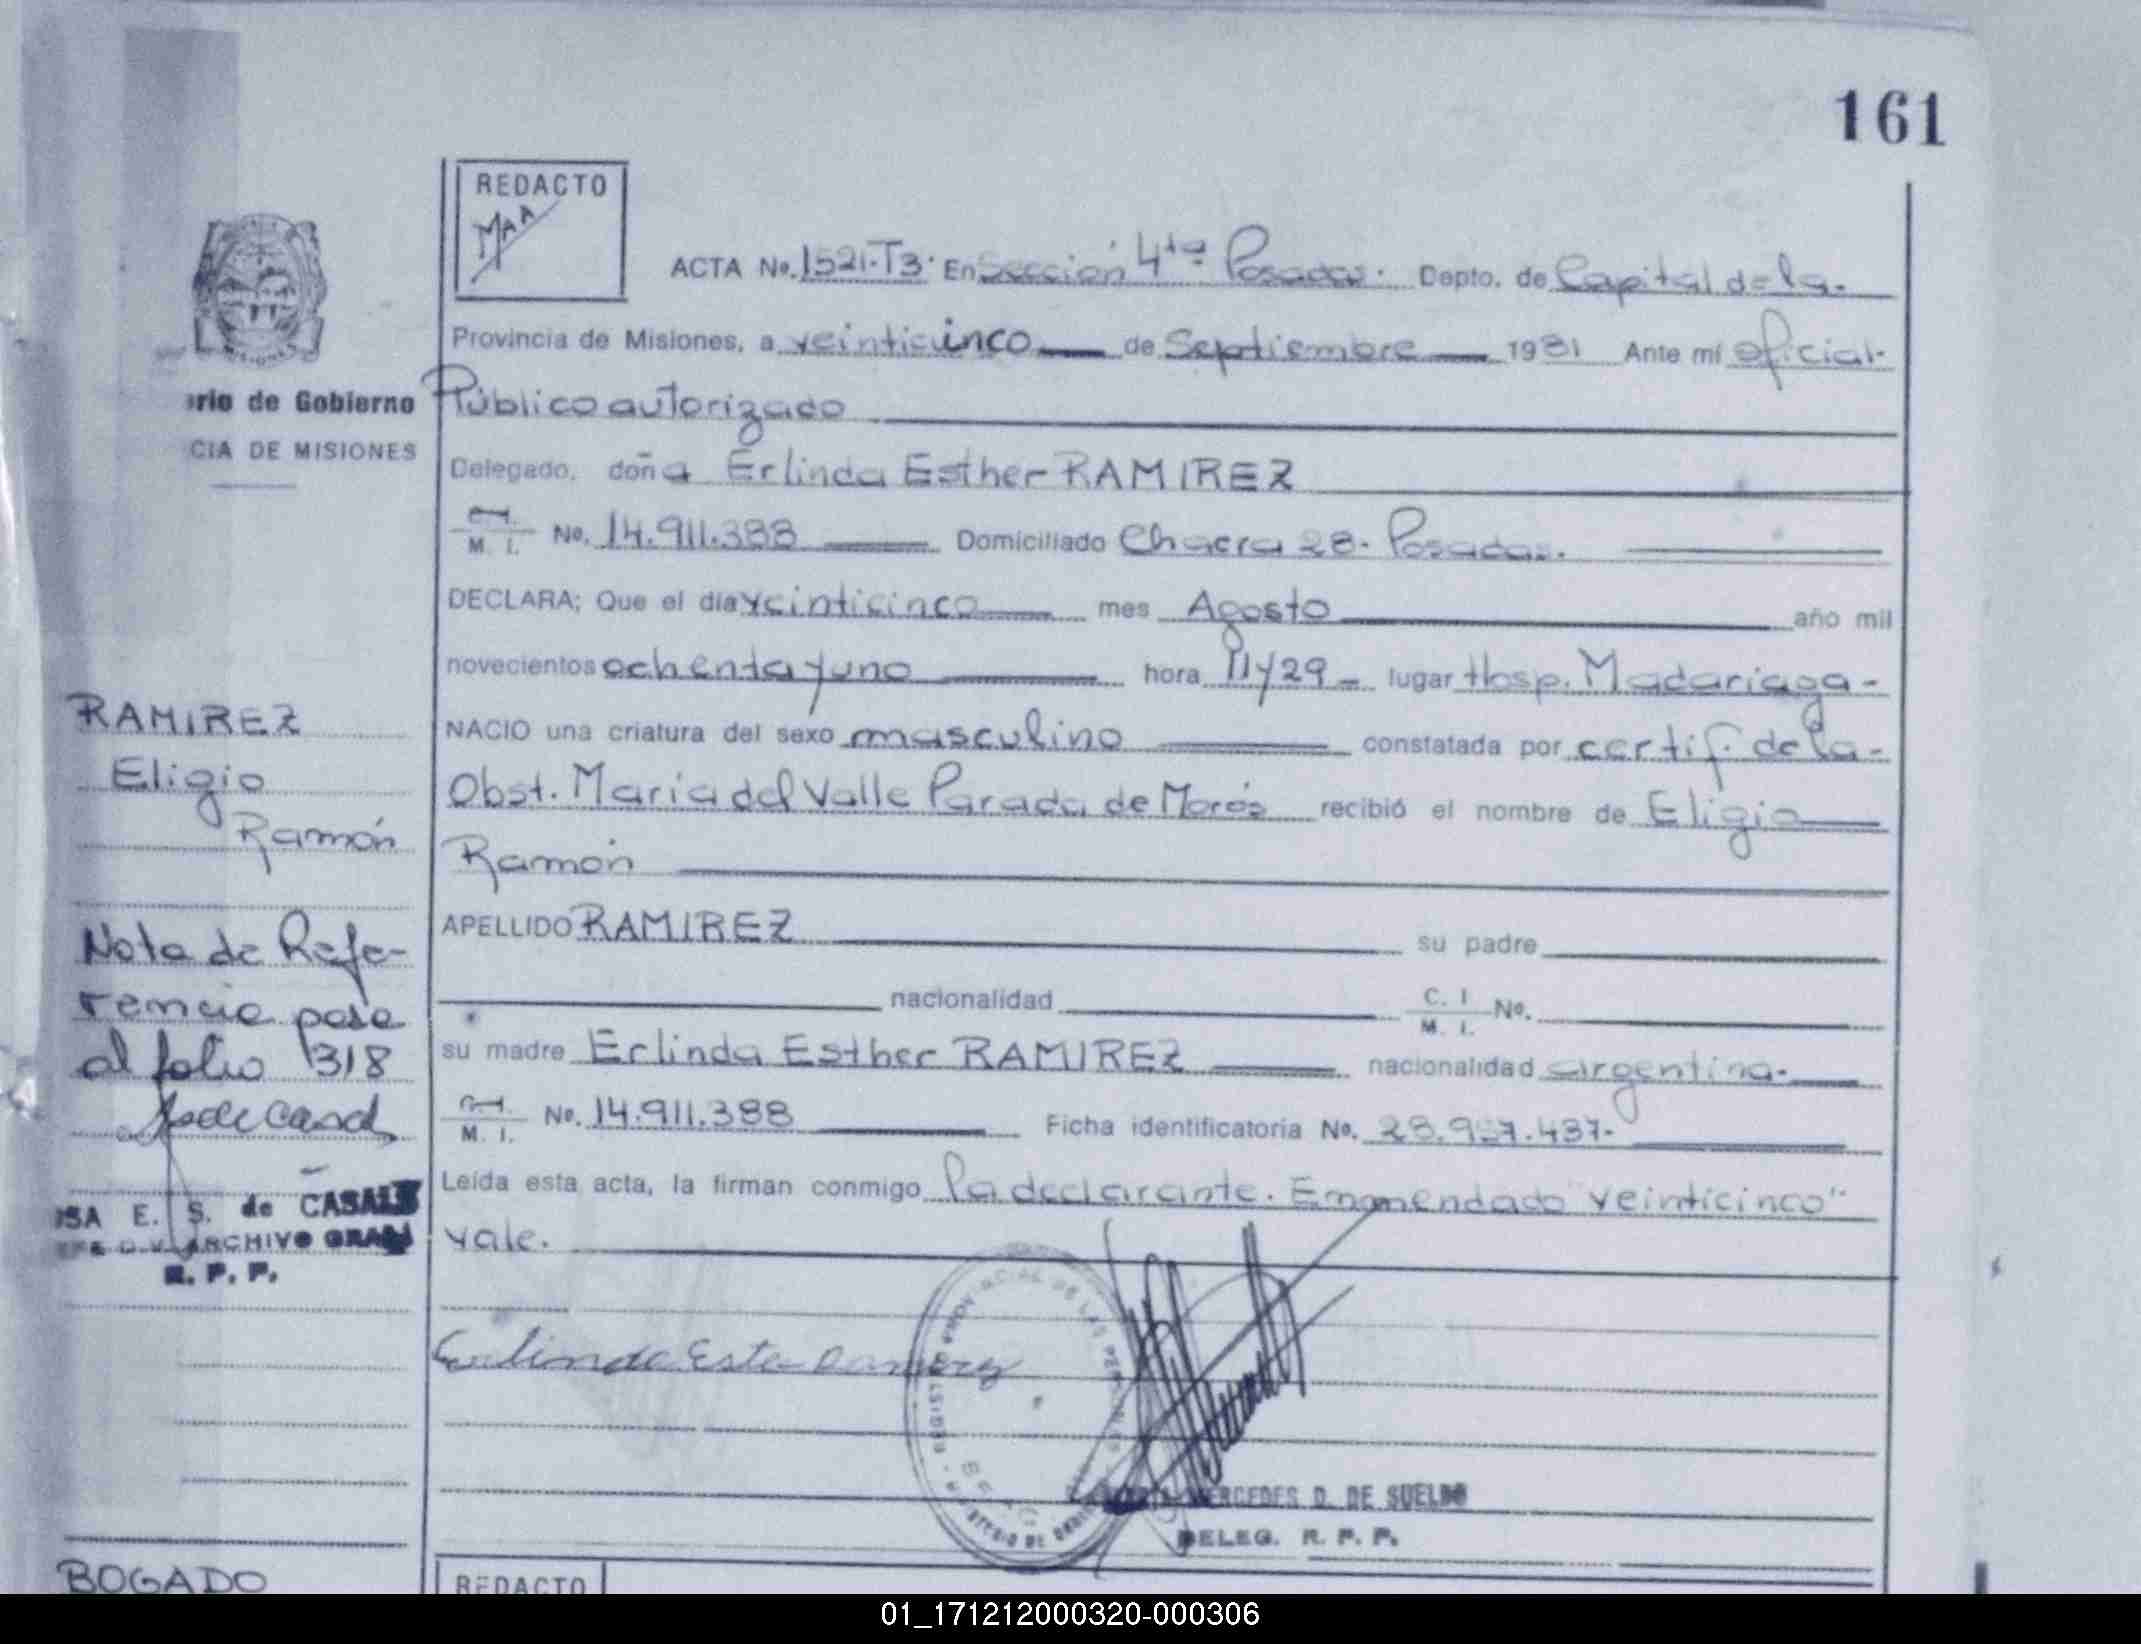 161
REDACTO
MAA
ACTA No. 1521-T3. En Sección 4ta Posadas. Depto. de Capital de la-
Provincia de Misiones, a veinticinco de Septiembre 1981 Ante mí oficial-
Público autorizado
Delegado, doña Erlinda Esther RAMIREZ
M. I. No. 14.911.388 Domiciliado Chacra 28- Posadas.
DECLARA; Que el día veinticinco mes Agosto año mil
novecientos ochenta y uno hora 11 y 29 lugar Hosp. Madariaga-
NACIO una criatura del sexo masculino constatada por certif. de la-
Obst. María del Valle Parada de Morós recibió el nombre de Eligio
Ramón
APELLIDO RAMIREZ su padre
nacionalidad C. I M. I. No.
su madre Erlinda Esther RAMIREZ nacionalidad argentina-
M. I. No. 14.911.388 Ficha identificatoria No. 28.9 7.437-
Leída esta acta, la firman conmigo la declarante. Enmendado "veinticinco"
vale.
Erlinda Ester Ramirez
MERCEDES D. DE SUELDO
DELEG. R. P. P.
rio de Gobierno
CIA DE MISIONES
RAMIREZ
Eligio
Ramón
Nota de Refe-
rencia pasa
al folio 318
SA E. S. de CASALS
ARCHIVO GRAL
R. P. P.
BOGADO
REDACTO
01_171212000320-000306